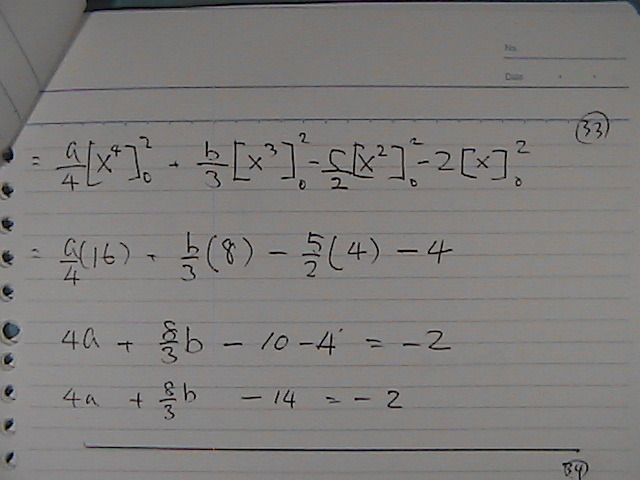 No.
Date
(33)
= a/4 [x^4]_0^2 + b/3 [x^3]_0^2 - 5/2 [x^2]_0^2 - 2 [x]_0^2
= a/4 (16) + b/3 (8) - 5/2 (4) - 4
4a + 8/3 b - 10 - 4 = -2
4a + 8/3 b - 14 = -2
(34)